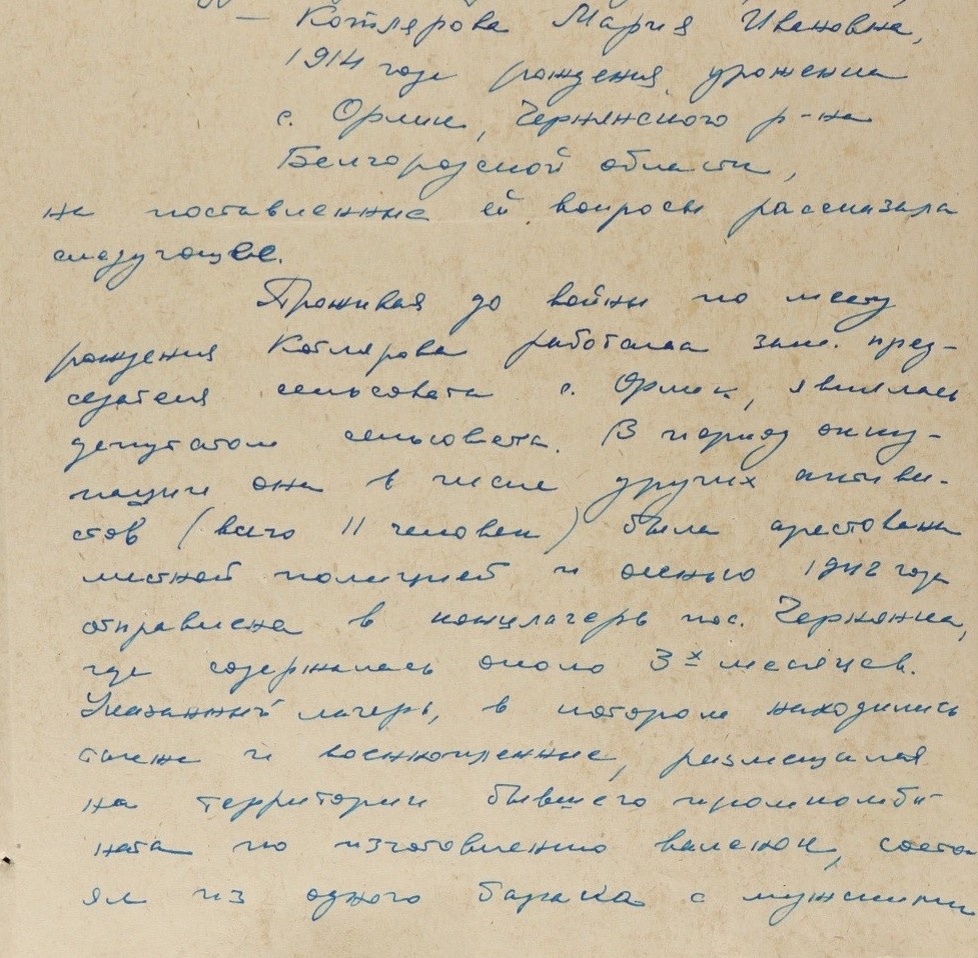 — Котлярова Мария Ивановна,
1914 года рождения, уроженка
с. Орлик, Чернянского р-на
Белгородской области,
на поставленные ей вопросы рассказала
следующее.
Проживая до войны по месту
рождения Котлярова работала зам. пред-
седателя сельсовета с. Орлик, являлась
депутатом сельсовета. В период окку-
пации она в числе других активи-
стов (всего 11 человек) была арестована
местной полицией и осенью 1942 года
отправлена в концлагерь пос. Чернянка,
где содержалась около 3х месяцев.
Указанный лагерь, в котором находились
также и военнопленные, размещался
на территории бывшего промкомби-
ната по изготовлению валенок, состо
ял из одного барака с мужскими